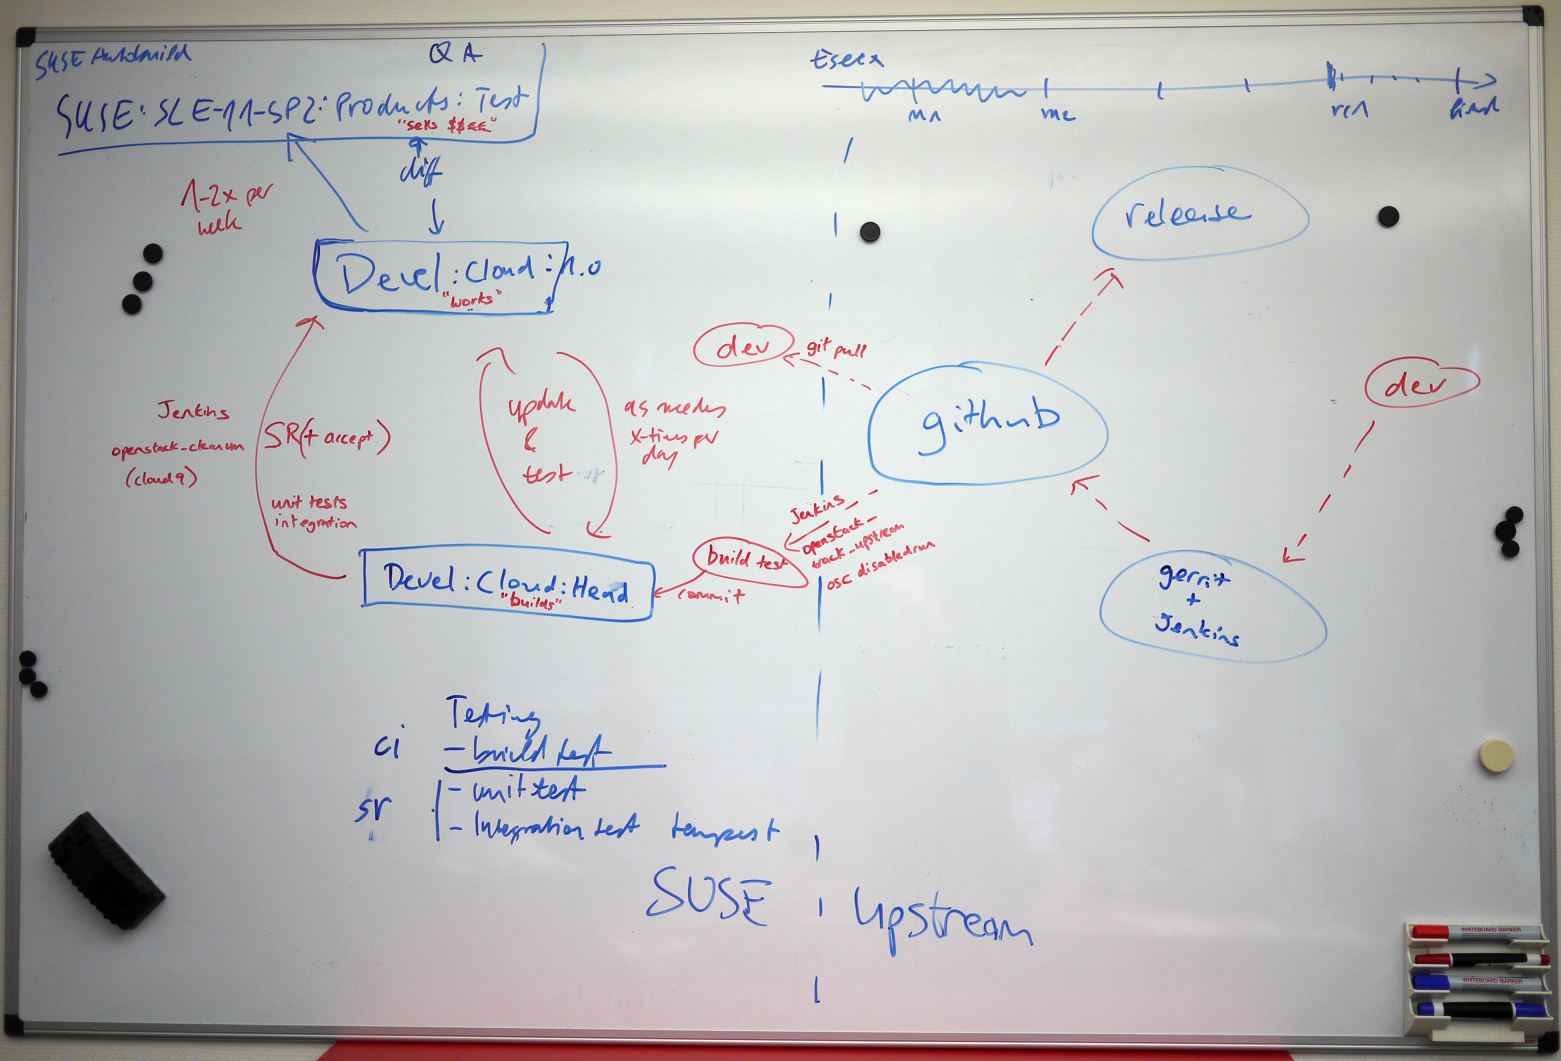 SUSE Autobuild
QA
SUSE:SLE-11-SP2:Products:Test
"sells $$€€"
diff
1-2x per
week
Devel:Cloud:1.0
"works"
Jenkins
openstack_cleanvm
(cloud9)
SR(+ accept)
unit tests
integration
update
&
test
as needed
x-times per
day
Devel:Cloud:Head
"builds"
dev
git pull
build test
commit
Jenkins
openstack_
track_upstream
osc disabledrun
Testing
ci
- build test
sr
- unit test
- Integration test tempest
SUSE
Upstream
Essex
rc1
final
release
github
dev
gerrit
+
Jenkins
WHITEBOARD MARKER
WHITEBOARD MARKER